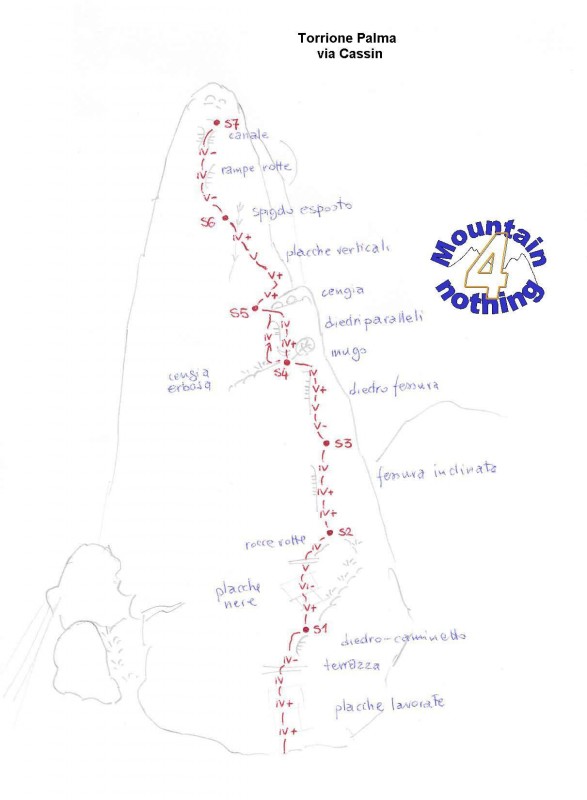 Torrione Palma
via Cassin
S7
canale
IV-
IV
rampe rotte
V-
S6
spigolo esposto
IV+
V
placche verticali
V+
V+
cengia
S5
diedri paralleli
IV
IV
IV+
mugo
S4
cengia
erbosa
IV
V+
V
V-
diedro fessura
S3
IV
fessura inclinata
IV+
IV+
S2
rocce rotte
IV
V
placche
nere
VI-
V+
S1
diedro-caminetto
IV-
terrazza
IV
IV+
placche lavorate
IV+
Mountain
4
nothing